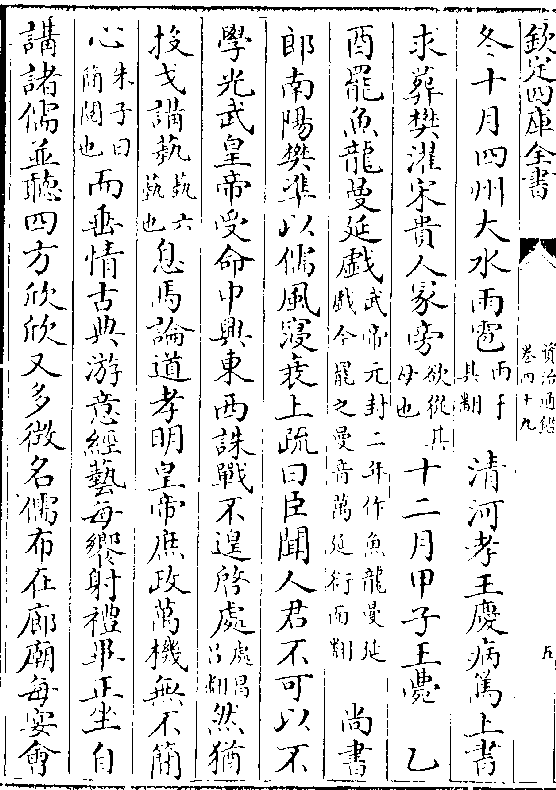 欽定四庫全書
資治通鑑
卷四十九
五
冬十月四州大水雨雹雨于其翻清河孝王慶病篤上書
求葬樊濯宋貴人冢旁欲從其母也十二月甲子王薨乙
酉罷魚龍曼延戲武帝元封二年作魚龍曼延戲今罷之曼音萬延衍面翻尚書
郎南陽樊準以儒風寖衰上疏曰臣聞人君不可以不
學光武皇帝受命中興東西誅戰不遑啓處處昌呂翻然猶
投戈講藝藝六藝也息馬論道孝明皇帝庶政萬機無不簡
心朱子曰簡閱也而垂情古典游意經藝每饗射禮畢正坐自
講諸儒並聽四方欣欣又多徵名儒布在廊廟每宴會